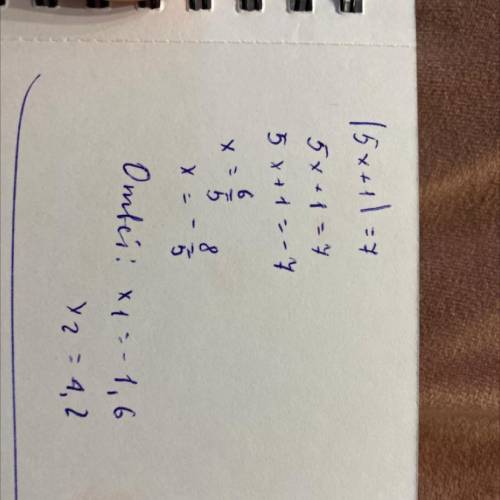 |5x+1|=7
5x+1=7
5x+1=-7
x=6/5
x=-8/5
Ответ: x1=-1,6
x2=1,2